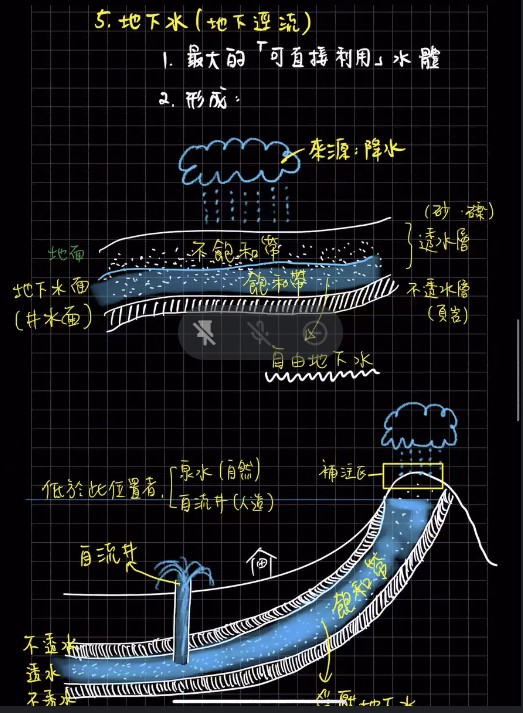 5. 地下水(地下逕流)
1. 最大的「可直接利用」水體
2. 形成:
來源:降水
(砂、礫)
透水層
地面
不飽和帶
地下水面
(井水面)
飽和帶
不透水層
(頁岩)
自由地下水
補注區
低於此位置者,
泉水(自然)
自流井(人造)
自流井
飽和帶
不透水
透水
不透水
地下水